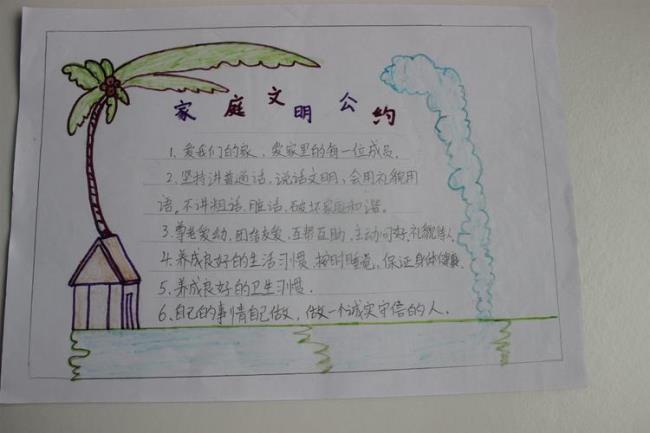 家庭文明公约
1.爱我们的家,爱家里的每一位成员.
2.坚持讲普通话,说话文明,会用礼貌用
语.不讲粗话、脏话.破坏家庭和谐.
3.尊老爱幼,团结友爱,互帮互助,主动问好,礼貌待人.
4.养成良好的生活习惯.按时睡觉,保证身体健康.
5.养成良好的卫生习惯.
6.自己的事情自己做,做一个诚实守信的人.